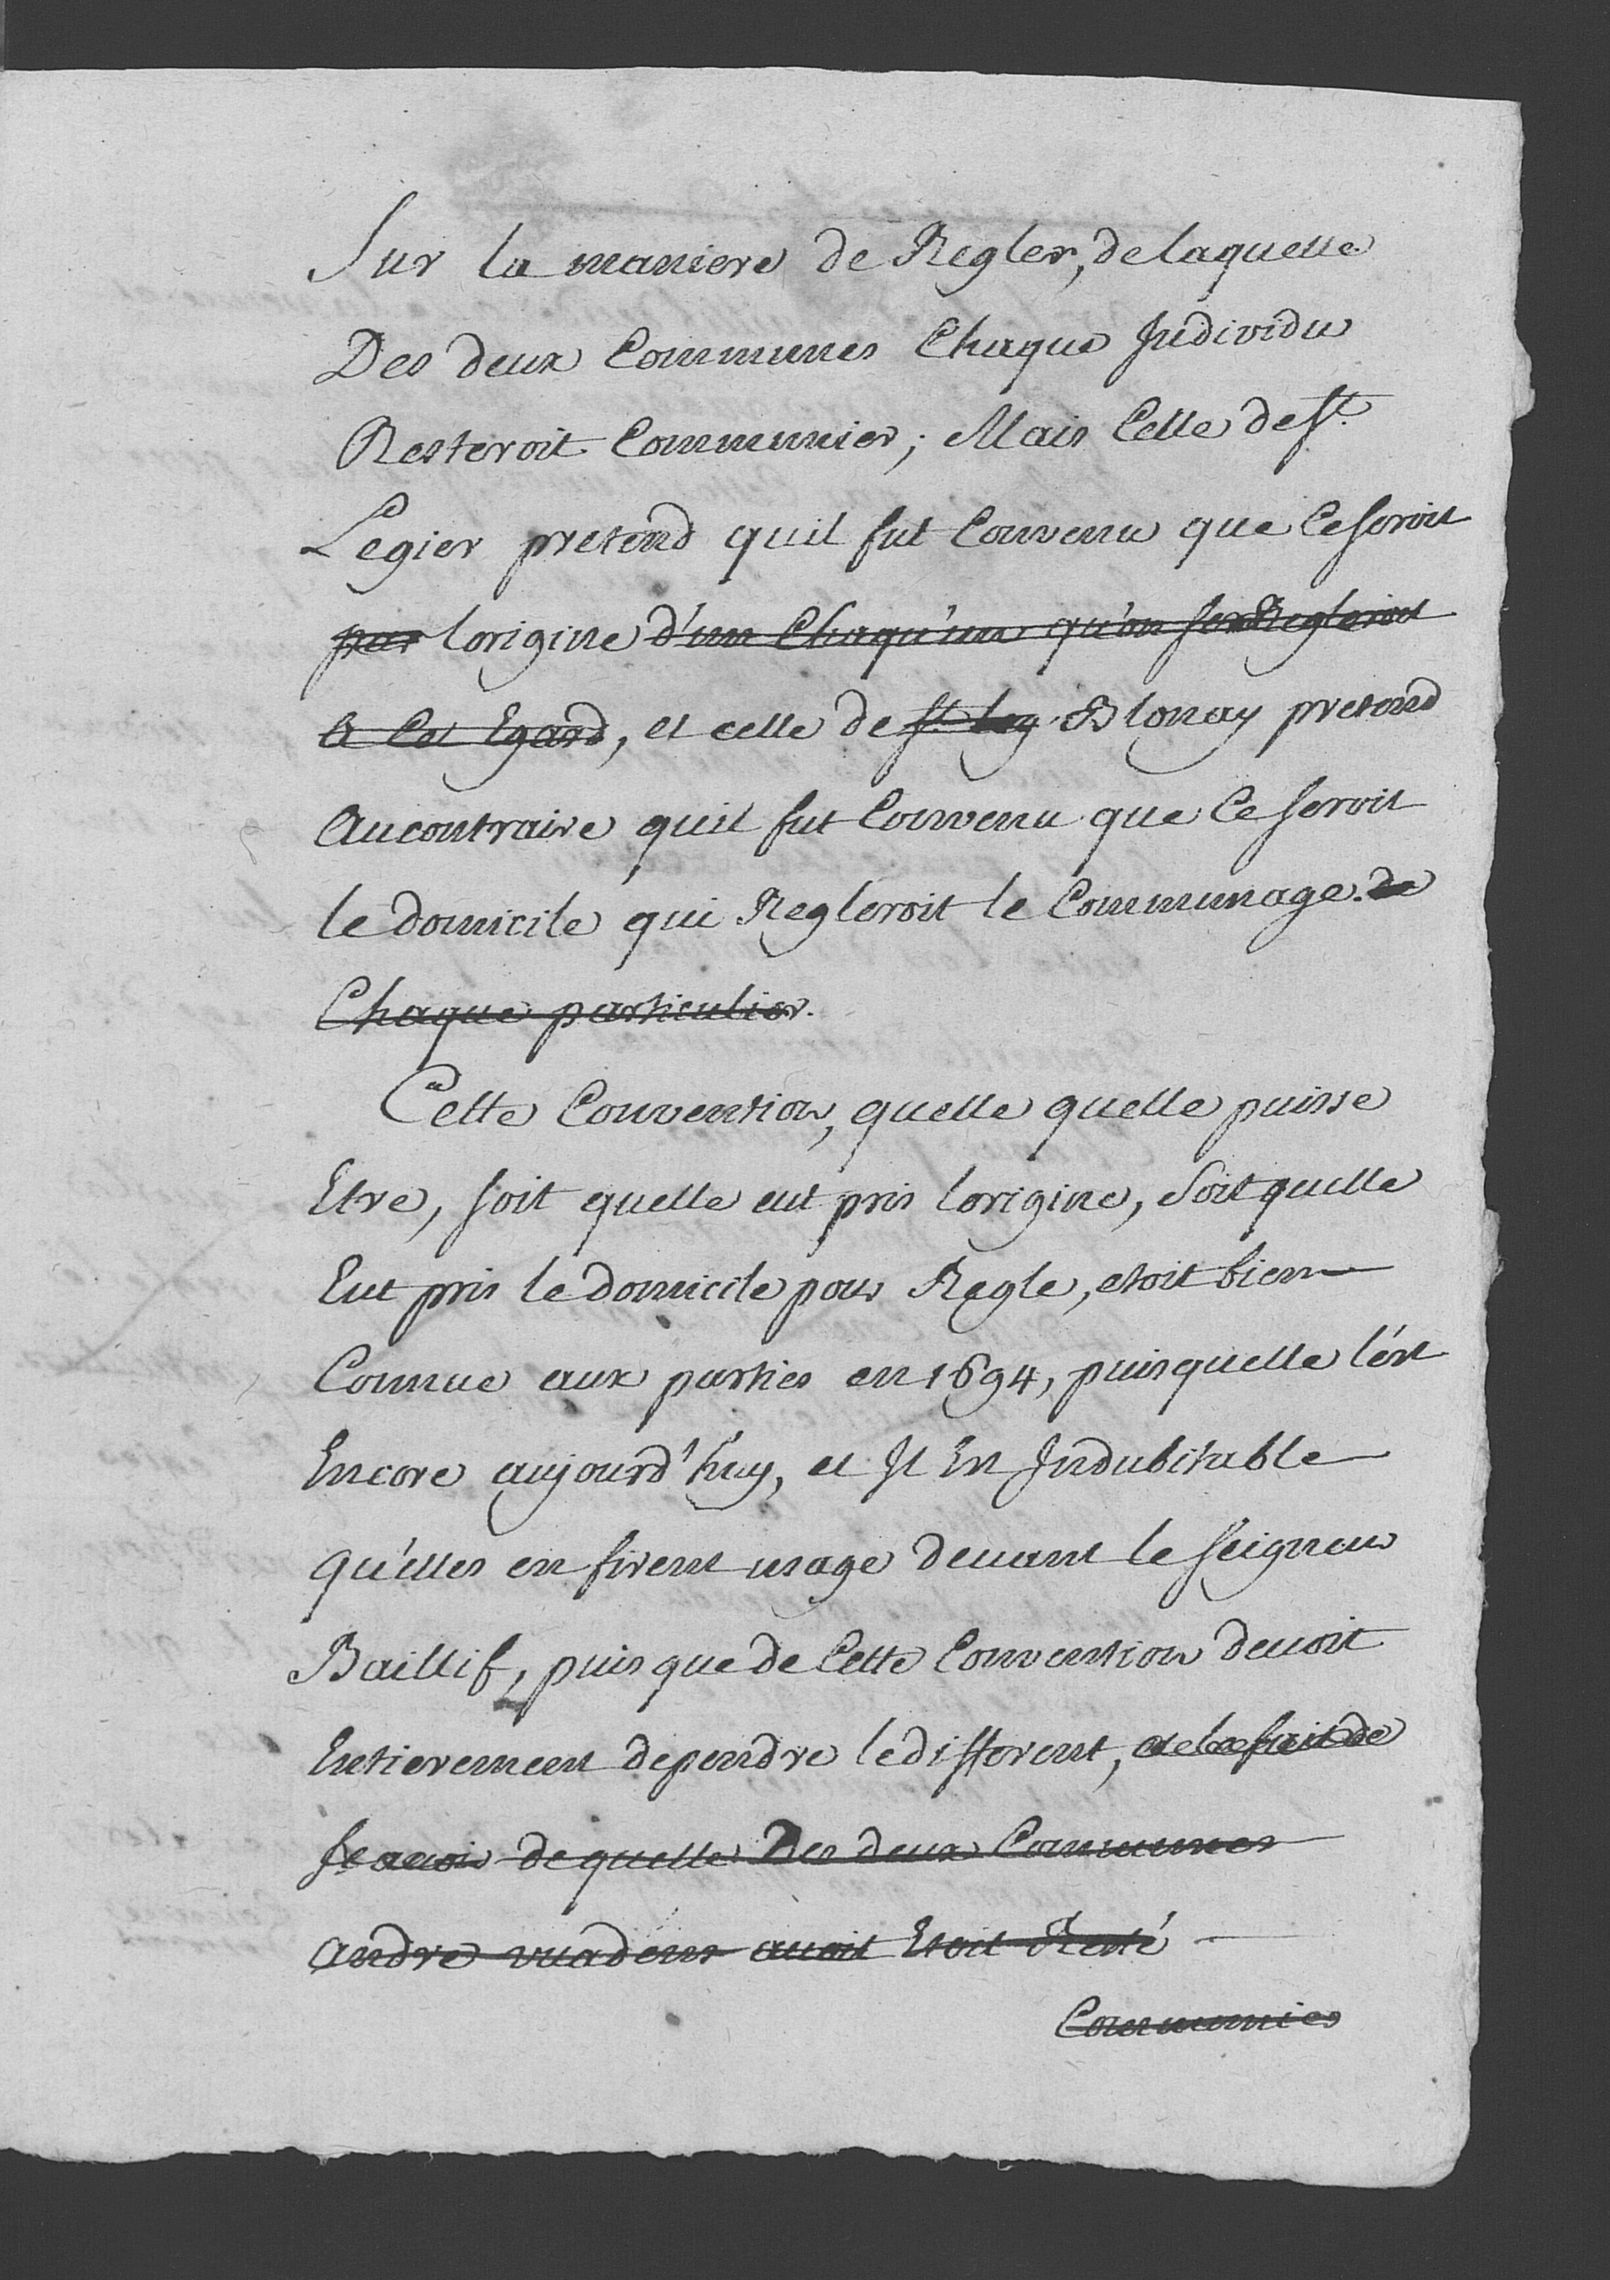 Sur la maniere de Regler, de laquelle
Des deux Communes Chaque Individu
Resteroit Communier; Mais Celle de St.
Legier pretend quil fut Convenu que Ce seroit
par lorigine d'un Chaqu'un qu'on se Regleroit
A Cet Egard, et celle de St. Leg Blonay pretend
Aucontraire quil fut Convenu que Ce seroit
le domicile qui Regleroit le Communage. de
Chaque particulier.
Cette Convention, quelle quelle puisse
Etre, soit quelle eut pris lorigine, Soit quelle
Eut pris le domicile pour Regle, etoit bien
Connue aux parties en 1694, puisquelle l'ést
Encore aujourd'huy, et Il Est Indubitable
Qu'elles en firent usage devant le Seigneur
Baillif, puis que de Cette Convention devoit
Entierement dependre le different, et le fait de
scavoir de quelle Des deux Communes
Andre vuadens avoit Etoit Resté
Communier